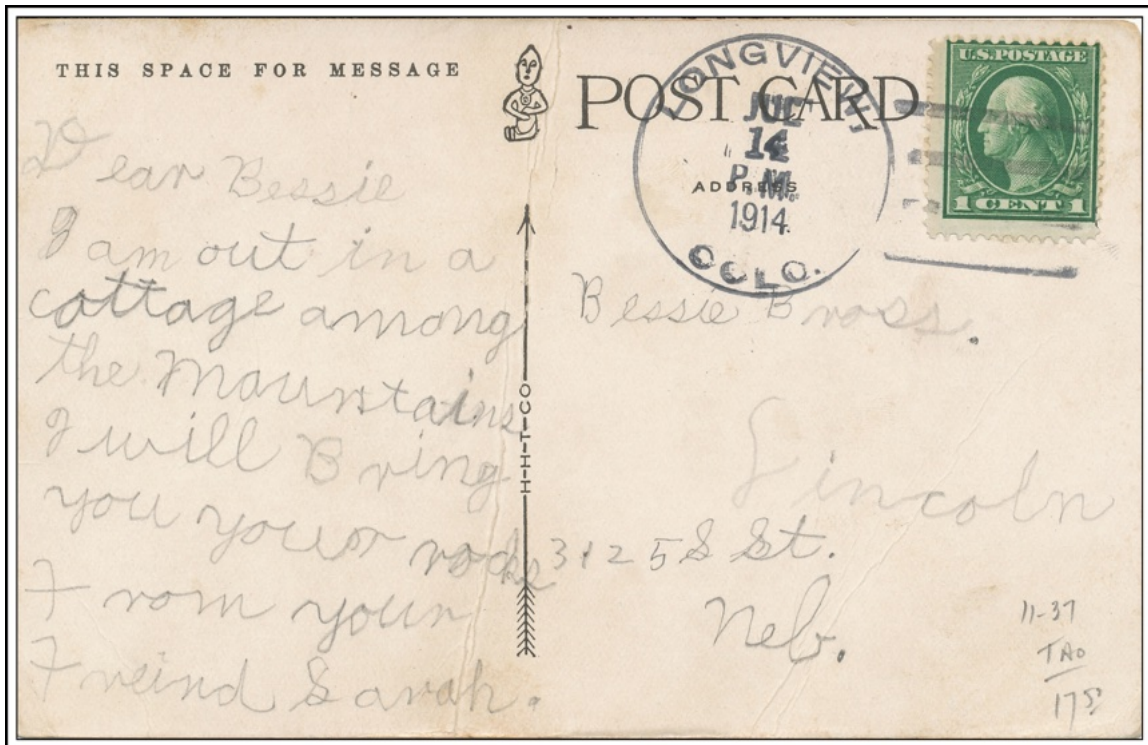 THIS SPACE FOR MESSAGE
Dear Bessie
I am out in a
cottage among
the Mountains
I will Bring
you your rocks
From your
Freind Sarah.
H-H-T-CO
POST CARD
ADDRESS
LONGVIEW,
JUL
14
P.M.
1914
COLO.
U.S. POSTAGE
1 CENT 1
Bessie Bross.
Lincoln
3125 S St.
Neb.
11-37
TAO